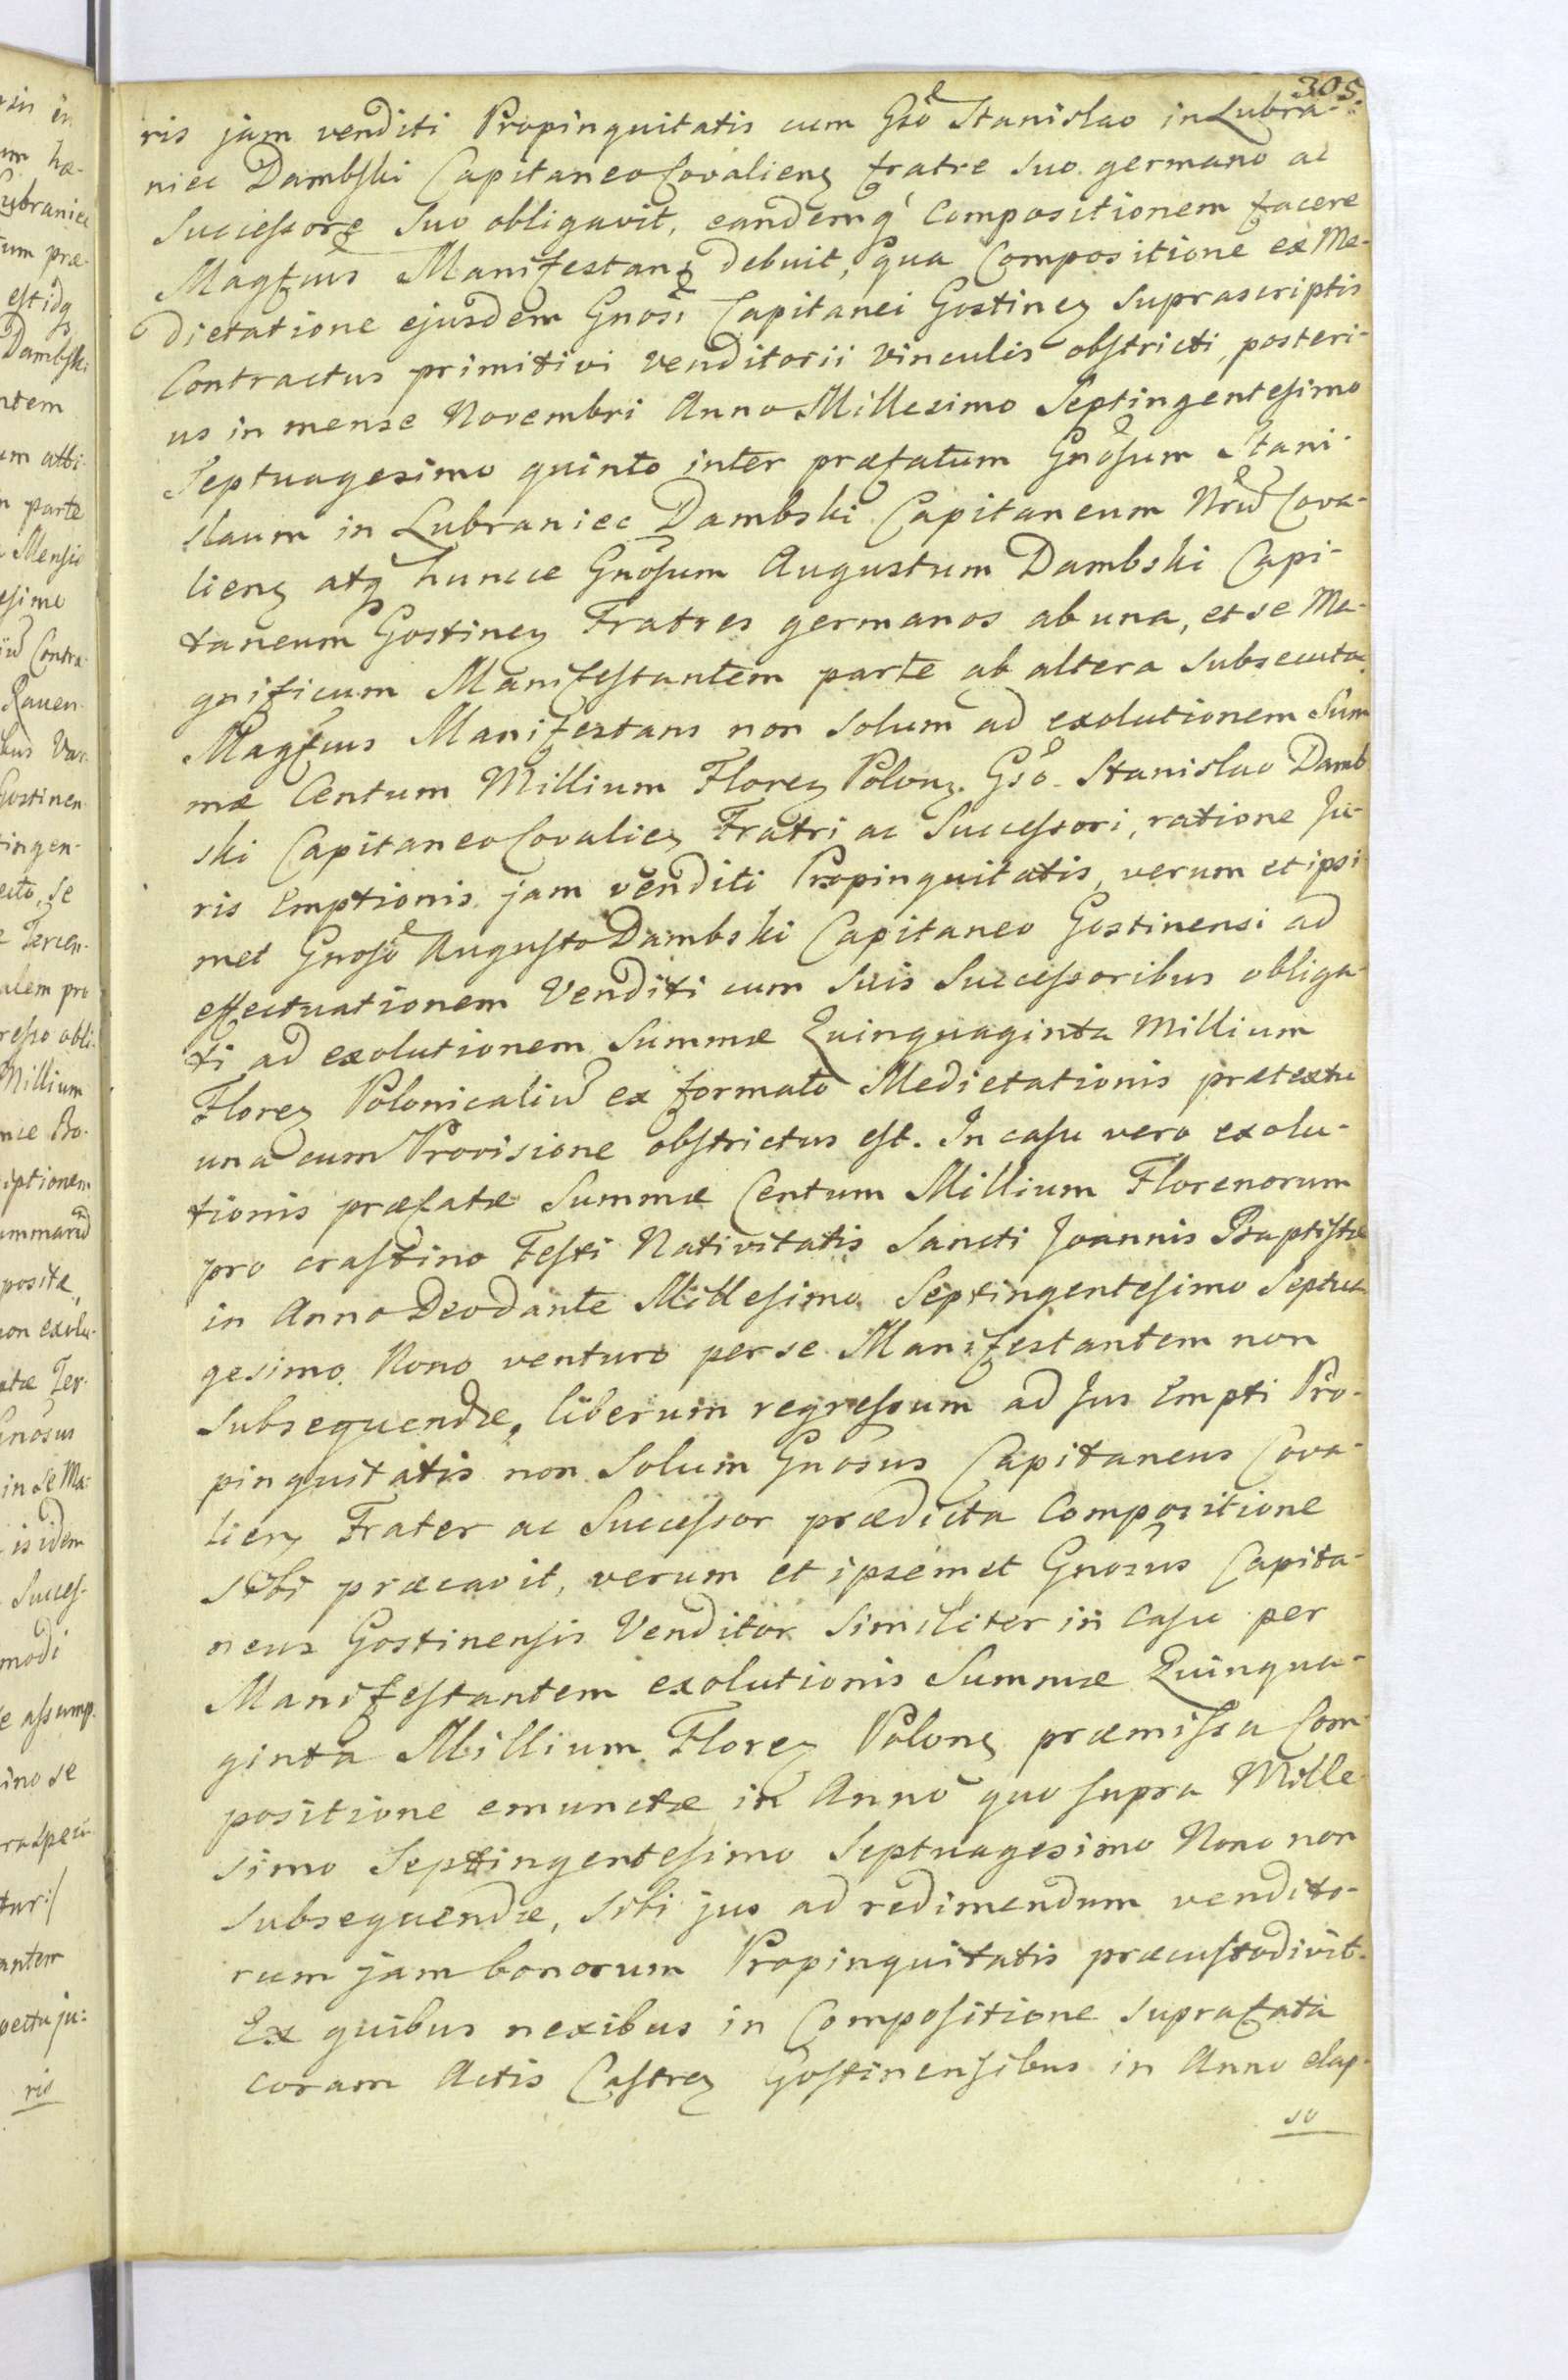 305.
ris jam venditi Propinquitatis cum Gso Stanislao in Lubra-
niec Dambski Capitaneo Covalieng fratre suo germano ac
Successore suo obligavit, eandemq Compositionem facere
Magfcus Manifestans debuit, qua Compositione ex Me-
dietatione ejusdem Gnosi Capitanei Gostineg supra scriptis
Contractus primitivi venditorii vinculis obstricti, posteri-
us in mense Novembri Anno Millesimo Septingentesimo
Septuagesimo quinto inter præfatum Gnosum Stani-
slaum in Lubraniec Dambski Capitaneum Nrum Cova-
lieng atq huncce Gnosum Augustum Dambski Capi-
taneum Gostineg Fratres germanos ab una, et se Ma-
gnificum Manifestantem parte ab altera subsecuta
Magfcus Manifestans non solum ad exolutionem Sum
mæ Centum Millium Floreg Polong. Gso. Stanislao Damb
ski Capitaneo Covalieg Fratri ac Successori, ratione Ju-
ris Emptionis jam venditi Propinquitatis, verum et ipsi
met Gnoso Augusto Dambski Capitaneo Gostinensi ad
effectuationem Venditi cum suis Successoribus obliga-
ti ad exolutionem Summæ Quinquaginta Millium
Floreg Polonicaliu ex formato Medietationis prætextu
una cum Provisione obstrictus est. In casu vero exolu-
tionis præfatæ Summæ Centum Millium Florenorum
pro crastino Festi Nativitatis Sancti Joannis Baptistæ
in Anno Deo dante Millesimo Septingentesimo Septua
gesimo Nono venturo per se Manifestantem non
subsequendæ, liberum regressum ad Jus Empti Pro-
pinquitatis non solum Gnosus Capitaneus Cova-
lieng Frater ac Successor prædicta Compositione
sibi præcavit, verum et ipsemet Gnosus Capita-
neus Gostinensis Venditor similiter in casu per
Manifestantem exolutionis Summæ Quinqua-
ginta Millium Floreg Polong præmissa Com-
positione emunctæ in Anno quo supra Mille
simo Septingentesimo Septuagesimo Nono non
subsequendæ, sibi jus ad redimendum vendito-
rum jam bonorum Propinquitatis præcustodivit.
Ex quibus nexibus in Compositione suprafata
coram Actis Castreg Gostinensibus in Anno elap-
so